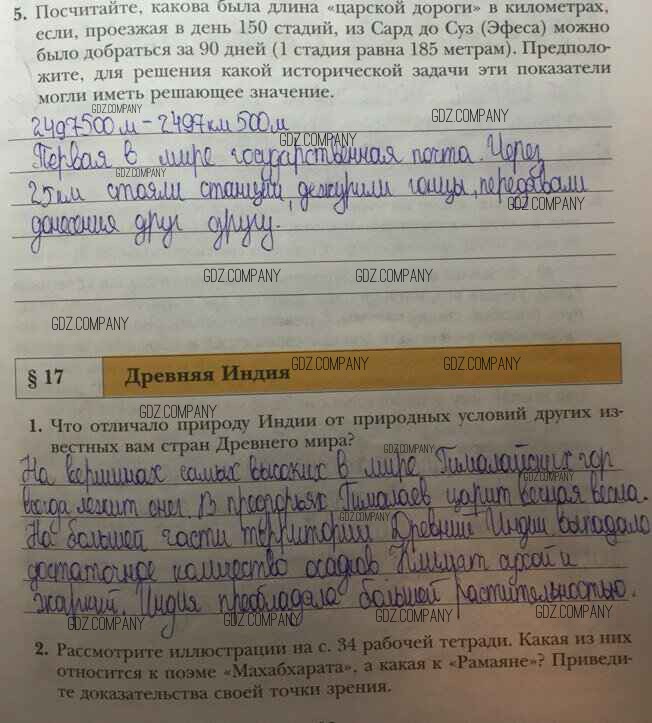 5. Посчитайте, какова была длина «царской дороги» в километрах,
если, проезжая в день 150 стадий, из Сард до Суз (Эфеса) можно
было добраться за 90 дней (1 стадия равна 185 метрам). Предполо-
жите, для решения какой исторической задачи эти показатели
могли иметь решающее значение.
GDZ.COMPANY
GDZ.COMPANY
2497500 м – 2497 км 500 м
GDZ.COMPANY
Первая в мире государственная почта. Через
GDZ.COMPANY
25 км стояли станции, дежурили гонцы, передавали
GDZ.COMPANY
донесения друг другу.
GDZ.COMPANY
GDZ.COMPANY
GDZ.COMPANY
§ 17 Древняя Индия
GDZ.COMPANY
GDZ.COMPANY
GDZ.COMPANY
1. Что отличало природу Индии от природных условий других из-
вестных вам стран Древнего мира?
GDZ.COMPANY
На вершинах самых высоких в мире Гималайских гор
GDZ.COMPANY
всегда лежит снег. В предгорьях Гималаев царит вечная весна.
GDZ.COMPANY
На большей части территории Древней Индии выпадало
достаточное количество осадков Климат сухой и
жаркий. Индия преобладала большей растительностью.
GDZ.COMPANY
GDZ.COMPANY
GDZ.COMPANY
GDZ.COMPANY
2. Рассмотрите иллюстрации на с. 34 рабочей тетради. Какая из них
относится к поэме «Махабхарата», а какая к «Рамаяне»? Приведи-
те доказательства своей точки зрения.